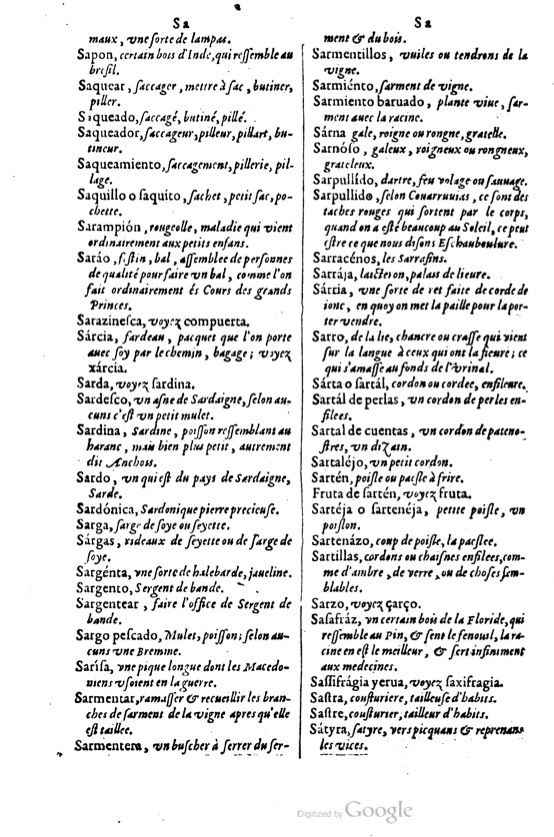 Sa
maux, vne ſorte de lampas.
Sapon, certain bois d'Inde, qui reſſemble au
breſil.
Saquear, ſaccager, mettre à ſac, butiner,
piller.
Saqueado, ſaccagé, butiné, pillé.
Saqueador, ſaccageur, pilleur, pillart, bu-
tineur.
Saqueamiento, ſaccagement, pillerie, pil-
lage.
Saquillo o ſaquito, ſachet, petit ſac, po-
chette.
Sarampión, rougeolle, maladie qui vient
ordinairement aux petits enfans.
Saráo, feſtin, bal, aſſemblee de perſonnes
de qualité pour faire vn bal, comme l'on
fait ordinairement és Cours des grands
Princes.
Sarazineſca, voyez compuerta.
Sárcia, fardeau, pacquet que l'on porte
auec ſoy par le chemin, bagage; voyez
xárcia.
Sarda, voyez ſardina.
Sardeſco, vn aſne de Sardaigne, ſelon au-
cuns c'eſt vn petit mulet.
Sardina, Sardine, poiſſon reſſemblant au
haranc, mais bien plus petit, autrement
dit Anchois.
Sardo, vn qui eſt du pays de Sardaigne,
Sarde.
Sardónica, Sardonique pierre precieuſe.
Sarga, ſarge de ſoye ou ſeyette.
Sárgas, rideaux de ſeyette ou de ſarge de
ſoye.
Sargénta, vne ſorte de halebarde, iaueline.
Sargento, Sergent de bande.
Sargentear, faire l'office de Sergent de
bande.
Sargo peſcado, Mulet, poiſſon; ſelon au-
cuns vne Bremme.
Sariſa, vne pique longue dont les Macedo-
niens vſoient en la guerre.
Sarmentar, ramaſſer & recueillir les bran-
ches de ſarment de la vigne apres qu'elle
eſt taillee.
Sarmentera, vn buſcher à ſerrer du ſer-
Sa
ment & du bois.
Sarmentillos, vuiles ou tendrons de la
vigne.
Sarmiénto, ſarment de vigne.
Sarmiento baruado, plante viue, ſar-
ment auec la racine.
Sárna gale, roigne ou rongne, gratelle.
Sarnóſo, galeux, roigneux ou rongneux,
grateleux.
Sarpullído, dartre, feu volage ou ſauuage.
Sarpullido, ſelon Couarruuias, ce ſont des
taches rouges qui ſortent par le corps,
quand on a eſté beaucoup au Soleil, ce peut
eſtre ce que nous diſons Eſchauboulure.
Sarracénos, les Sarraſins.
Sartája, laicteron, palais de lieure.
Sárria, vne ſorte de ret faite de corde de
ionc, en quoy on met la paille pour la por-
ter vendre.
Sarro, de la lie, chancre ou craſſe qui vient
ſur la langue à ceux qui ont la fieure; ce
qui s'amaſſe au fonds de l'Vrinal.
Sárta o ſartál, cordon ou cordee, enfileure.
Sartál de perlas, vn cordon de perles en-
filees.
Sartal de cuentas, vn cordon de pateno-
ſtres, vn dizain.
Sartaléjo, vn petit cordon.
Sartén, poiſle ou paeſle à frire.
Fruta de ſartén, voyez fruta.
Sartéja o ſartenéja, petite poiſle, vn
poiſlon.
Sartenázo, coup de poiſle, la paeſlee.
Sartillas, cordons ou chaiſnes enfilees, com-
me d'ambre, de verre, ou de choſes ſem-
blables.
Sarzo, voyez çarço.
Saſafráz, vn certain bois de la Floride, qui
reſſemble au Pin, & ſent le fenouil, la ra-
cine en eſt le meilleur, & ſert infiniment
aux medecines.
Saſſifrágia yerua, voyez ſaxifragia.
Saſtra, couſturiere, tailleuſe d'habits.
Saſtre, couſturier, tailleur d'habits.
Sátyra, ſatyre, vers picquans & reprenans
les vices.
Digitized by Google